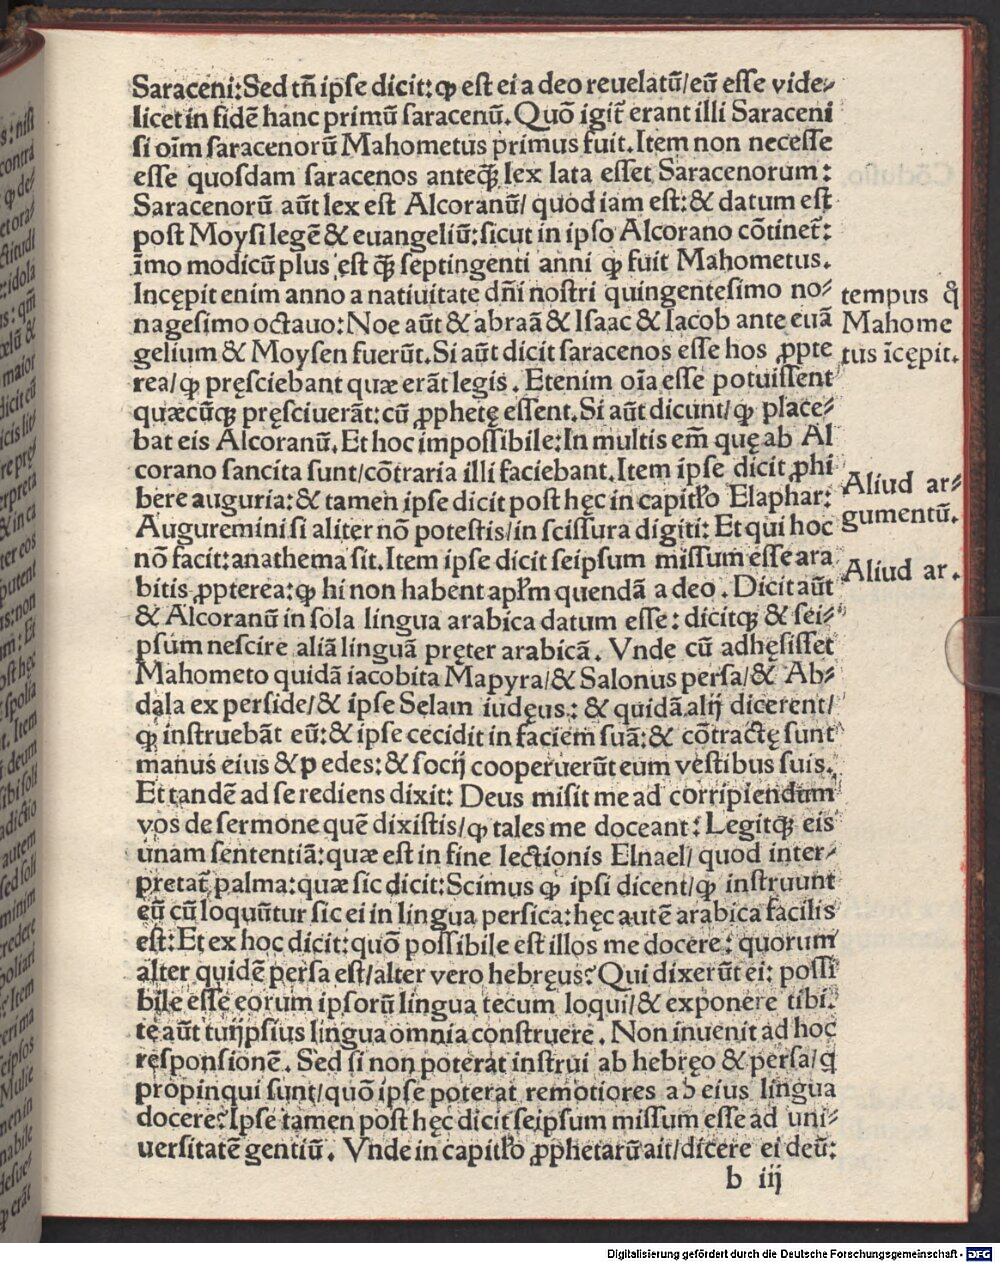 Saraceni: Sed tñ ipſe dicit: ꝙ eſt ei a deo reuelatũ/eũ eſſe vide⸗
licet in fidẽ hanc primũ ſaracenũ. Quõ igit̃ erant illi Saraceni
ſi oĩm ſaracenorũ Mahometus primus fuit. Item non neceſſe
eſſe quoſdam ſaracenos anteq̃ꝫ lex lata eſſet Saracenorum:
Saracenorũ aũt lex eſt Alcoranũ/ quod iam eſt: & datum eſt
poſt Moyſi legẽ & euangeliũ: ſicut in ipſo Alcorano cõtinet̃:
ĩmo modicũ plus eſt q̃ꝫ ſeptingenti anni ꝙ fuit Mahometus.
Incępit enim anno a natiuitate dñi noſtri quingenteſimo no⸗
nageſimo octauo: Noe aũt & abraã & Iſaac & Iacob ante euã
gelium & Moyſen fuerũt. Si aũt dicit ſaracenos eſſe hos ꝓpte
rea/ꝙ pręſciebant quæ erãt legis. Etenim oĩa eſſe potuiſſent
quæcũqꝫ pręſciuerãt: cũ ꝓphetę eſſent. Si aũt dicunt/ꝙ place⸗
bat eis Alcoranũ. Et hoc impoſſibile: In multis em̃ quę ab Al
corano ſancita ſunt/cõtraria illi faciebant. Item ipſe dicit ꝓhi
bere auguria: & tamen ipſe dicit poſt hęc in capitło Elaphar:
Auguremini ſi aliter nõ poteſtis/in ſciſſura digiti: Et qui hoc
nõ facit: anathema ſit. Item ipſe dicit ſeipſum miſſum eſſe ara
bitis ꝓpterea: ꝙ hi non habent apłm quendã a deo. Dicit aũt
& Alcoranũ in ſola lingua arabica datum eſſe: dicitqꝫ & ſei⸗
pſum neſcire aliã linguã pręter arabicã. Vnde cũ adhęſiſſet
Mahometo quidã iacobita Mapyra/& Salonus perſa/& Ab⸗
dala ex perſide/& ipſe Selam iudęus: & quidã alij dicerent/
ꝙ inſtruebãt eũ: & ipſe cecidit in faciem ſuã: & cõtractę ſunt
manus eius & p edes: & ſocij cooperuerũt eum veſtibus ſuis.
Et tandẽ ad ſe rediens dixit: Deus miſit me ad corripiendum
vos de ſermone quẽ dixiſtis/ꝙ tales me doceant: Legitqꝫ eis
unam ſententiã: quæ eſt in fine lectionis Elnael/ quod inter⸗
pretat̃ palma: quæ ſic dicit: Scimus ꝙ ipſi dicent/ꝙ inſtruunt
eũ cũ loquũtur ſic ei in lingua perſica: hęc autẽ arabica facilis
eſt: Et ex hoc dicit: quõ poſſibile eſt illos me docere: quorum
alter quidẽ perſa eſt/alter vero hebręus? Qui dixerũt ei: poſſi
bile eſſe eorum ipſorũ lingua tecum loqui/& exponere tibi:
te aũt tuijpſius lingua omnia conſtruere. Non inuenit ad hoc
reſponſionẽ. Sed ſi non poterat inſtrui ab hebręo & perſa/q̃
propinqui ſunt/quõ ipſe poterat remotiores ab eius lingua
docere? Ipſe tamen poſt hęc dicit ſeipſum miſſum eſſe ad uni⸗
uerſitatẽ gentiũ. Vnde in capitło ꝓphetarũ ait/dicere ei deũ:
b iij
tempus q̃
Mahome
tus ĩcępit.
Aliud ar⸗
gumentũ.
Aliud ar.
Digitalisierung gefördert durch die Deutsche Forschungsgemeinschaft - DFG